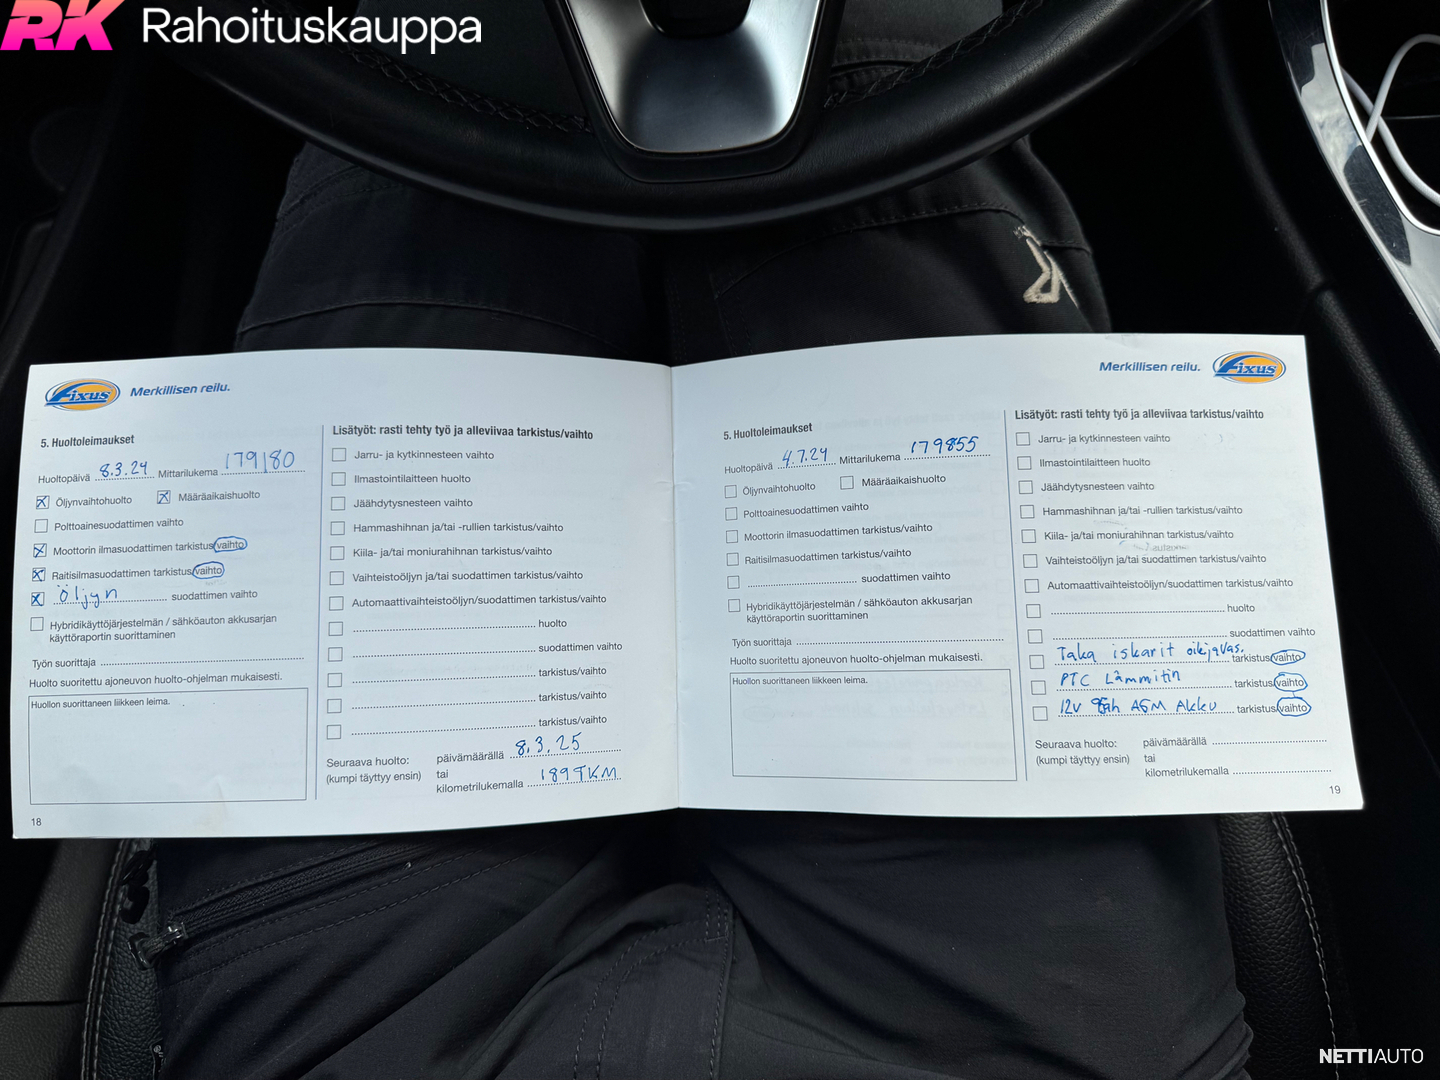 RK Rahoituskauppa
Fixus Merkillisen reilu.
5. Huoltoleimaukset
Huoltopäivä 8.3.24 Mittarilukema 179180
Öljynvaihtohuolto Määräaikaishuolto
Polttoainesuodattimen vaihto
Moottorin ilmasuodattimen tarkistus/vaihto
Raitisilmasuodattimen tarkistus/vaihto
Öljyn suodattimen vaihto
Hybridikäyttöjärjestelmän / sähköauton akkusarjan
käyttöraportin suorittaminen
Työn suorittaja
Huolto suoritettu ajoneuvon huolto-ohjelman mukaisesti.
Huollon suorittaneen liikkeen leima.
18
Lisätyöt: rasti tehty työ ja alleviivaa tarkistus/vaihto
Jarru- ja kytkinnesteen vaihto
Ilmastointilaitteen huolto
Jäähdytysnesteen vaihto
Hammashihnan ja/tai -rullien tarkistus/vaihto
Kiila- ja/tai moniurahihnan tarkistus/vaihto
Vaihteistoöljyn ja/tai suodattimen tarkistus/vaihto
Automaattivaihteistoöljyn/suodattimen tarkistus/vaihto
huolto
suodattimen vaihto
tarkistus/vaihto
tarkistus/vaihto
tarkistus/vaihto
Seuraava huolto: päivämäärällä 8.3.25
(kumpi täyttyy ensin) tai
kilometrilukemalla 189TKM
Merkillisen reilu. Fixus
5. Huoltoleimaukset
Huoltopäivä 4.7.24 Mittarilukema 179855
Öljynvaihtohuolto Määräaikaishuolto
Polttoainesuodattimen vaihto
Moottorin ilmasuodattimen tarkistus/vaihto
Raitisilmasuodattimen tarkistus/vaihto
suodattimen vaihto
Hybridikäyttöjärjestelmän / sähköauton akkusarjan
käyttöraportin suorittaminen
Työn suorittaja
Huolto suoritettu ajoneuvon huolto-ohjelman mukaisesti.
Huollon suorittaneen liikkeen leima.
Lisätyöt: rasti tehty työ ja alleviivaa tarkistus/vaihto
Jarru- ja kytkinnesteen vaihto
Ilmastointilaitteen huolto
Jäähdytysnesteen vaihto
Hammashihnan ja/tai -rullien tarkistus/vaihto
Kiila- ja/tai moniurahihnan tarkistus/vaihto
Vaihteistoöljyn ja/tai suodattimen tarkistus/vaihto
Automaattivaihteistoöljyn/suodattimen tarkistus/vaihto
huolto
suodattimen vaihto
Taka iskarit oik/vas. tarkistus/vaihto
PTC Lämmitin tarkistus/vaihto
12V AGM Akku tarkistus/vaihto
Seuraava huolto: päivämäärällä
(kumpi täyttyy ensin) tai
kilometrilukemalla
19
NETTIAUTO